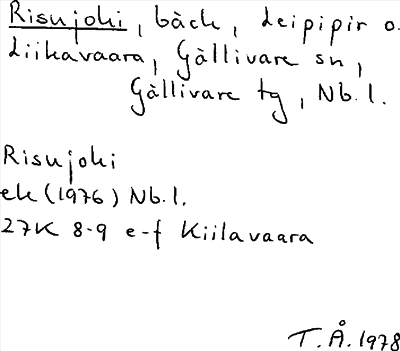 Risujoki, bäck, Leipipir o.
Liikavaara, Gällivare sn,
Gällivare tg, Nb.l.
Risujoki
ek (1976) Nb.l.
27K 8-9 e-f Kiilavaara
T.Å. 1978